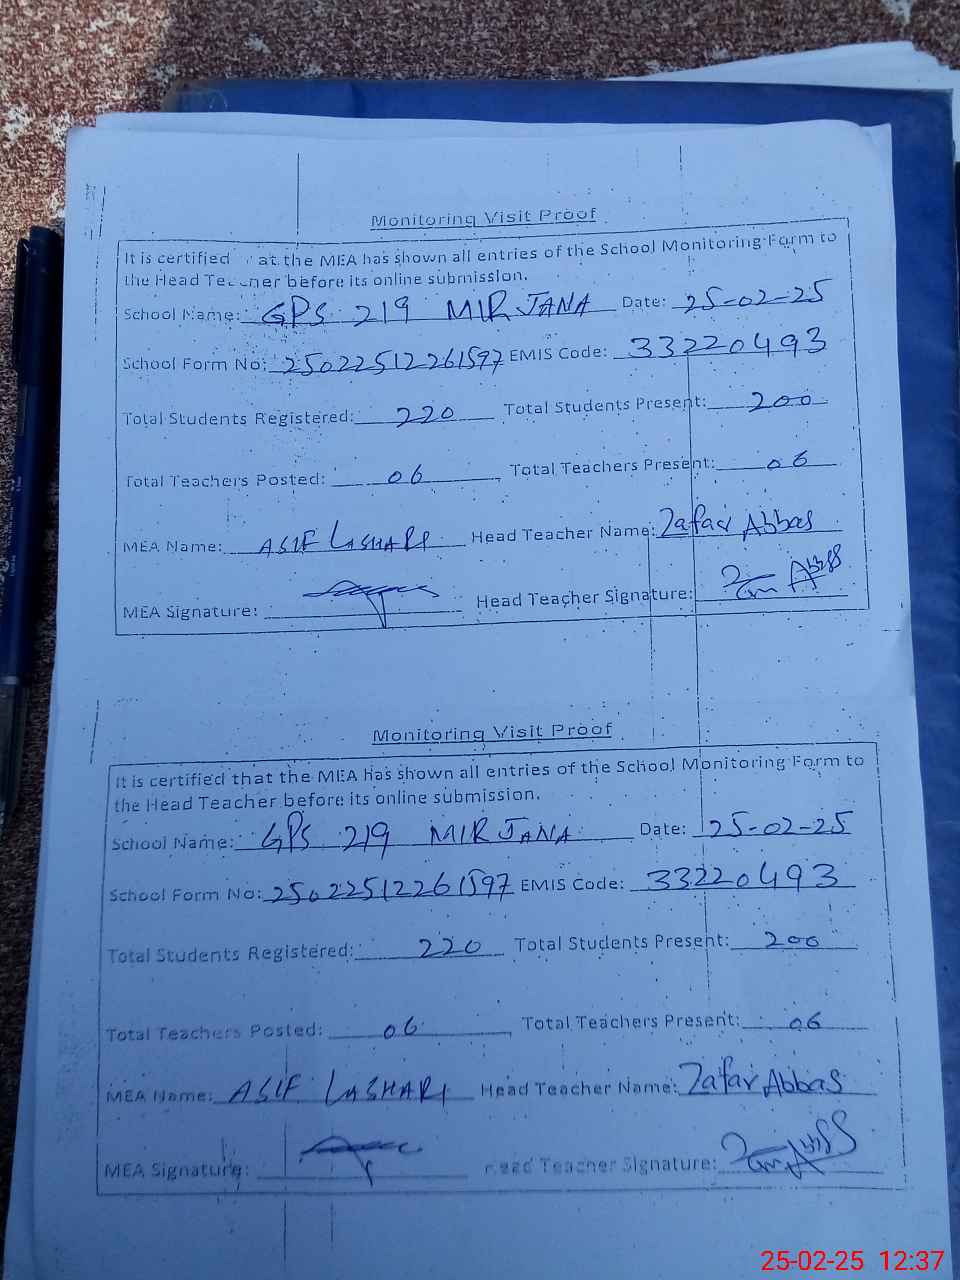 Monitoring Visit Proof
It is certified at the MEA has shown all entries of the School Monitoring Form to
the Head Teacher before its online submission.
School Name: GPS 219 MIR JANA Date: 25-02-25
School Form No: 250225122261597 EMIS Code: 33220493
Total Students Registered: 220 Total Students Present: 200
Total Teachers Posted: 06 Total Teachers Present: 06
MEA Name: ASIF LASHARI Head Teacher Name: Zafar Abbas
MEA Signature: Head Teacher Signature:
Monitoring Visit Proof
It is certified that the MEA has shown all entries of the School Monitoring Form to
the Head Teacher before its online submission.
School Name: GPS 219 MIR JANA Date: 25-02-25
School Form No: 250225122261597 EMIS Code: 33220493
Total Students Registered: 220 Total Students Present: 200
Total Teachers Posted: 06 Total Teachers Present: 06
MEA Name: ASIF LASHARI Head Teacher Name: Zafar Abbas
MEA Signature: Head Teacher Signature:
25-02-25 12:37